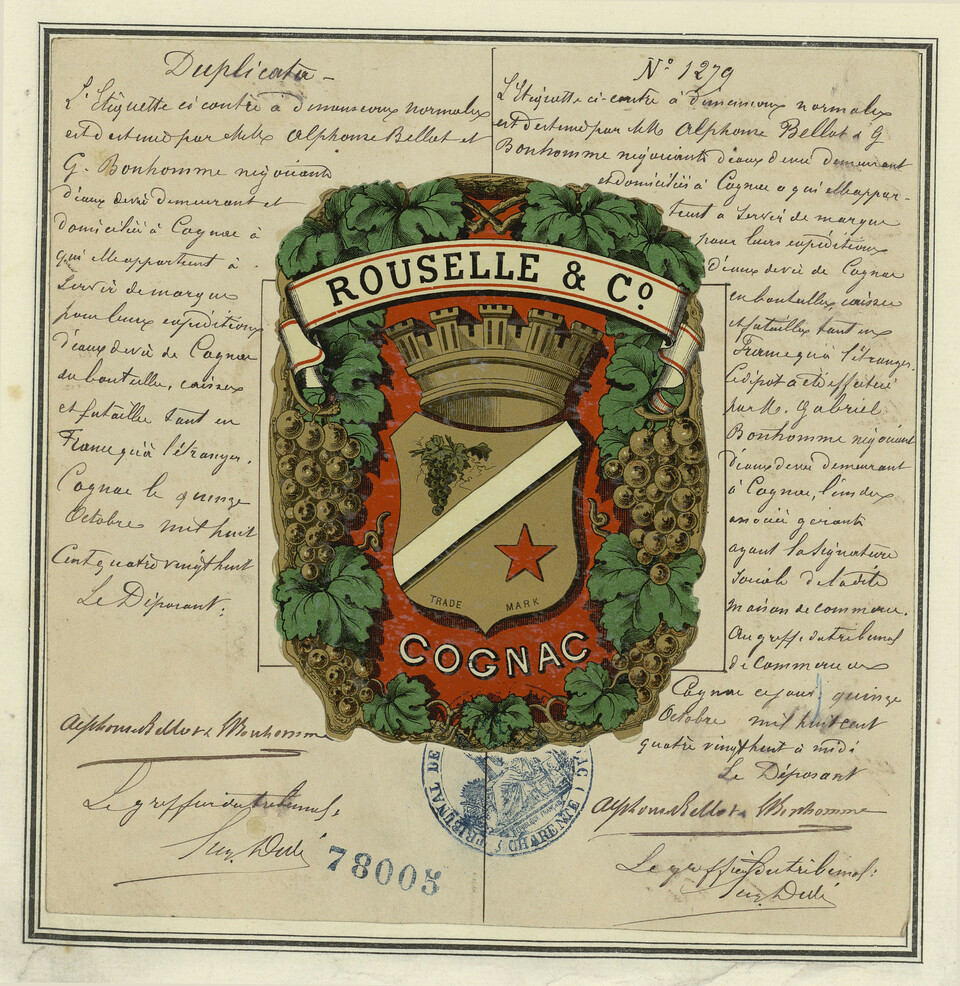 Duplicata
L'Etiquette ci contre à dimensions normales
est destinée par MM Alphonse Bellot et
G. Bonhomme négociants
d'eaux de vie demeurant et
domiciliés à Cognac à
qui elle appartient à
servir de marque
pour leurs expéditions
d'eaux de vie de Cognac
en bouteilles, caisses
et futailles tant en
France qu'à l'étranger.
Cognac le quinze
Octobre mil huit
cent quatre vingt huit
Le Déposant:
Alphonse Bellot & Bonhomme
Le greffier du tribunal,
N° 1279
L'Etiquette ci-contre à dimensions normales
est destinée par MM Alphonse Bellot & G
Bonhomme négociants d'eaux de vie demeurant
et domiciliés à Cognac a qui elle appar-
tient a servir de marque
pour leurs expéditions
d'eaux de vie de Cognac
en bouteilles caisses
et futailles tant en
France qu'à l'étranger.
Le dépot a été effectué
par M. Gabriel
Bonhomme négociant
d'eaux de vie demeurant
à Cognac, l'un des
associés gérants
ayant la signature
sociale de la dite
maison de commerce.
Au greffe du tribunal
de Commerce de
Cognac ce jour quinze
Octobre mil huit cent
quatre vingt huit à midi
Le Déposant
Alphonse Bellot & Bonhomme
Le greffier du tribunal:
ROUSELLE & Co
TRADE MARK
COGNAC
TRIBUNAL DE
CHARENTE
78005